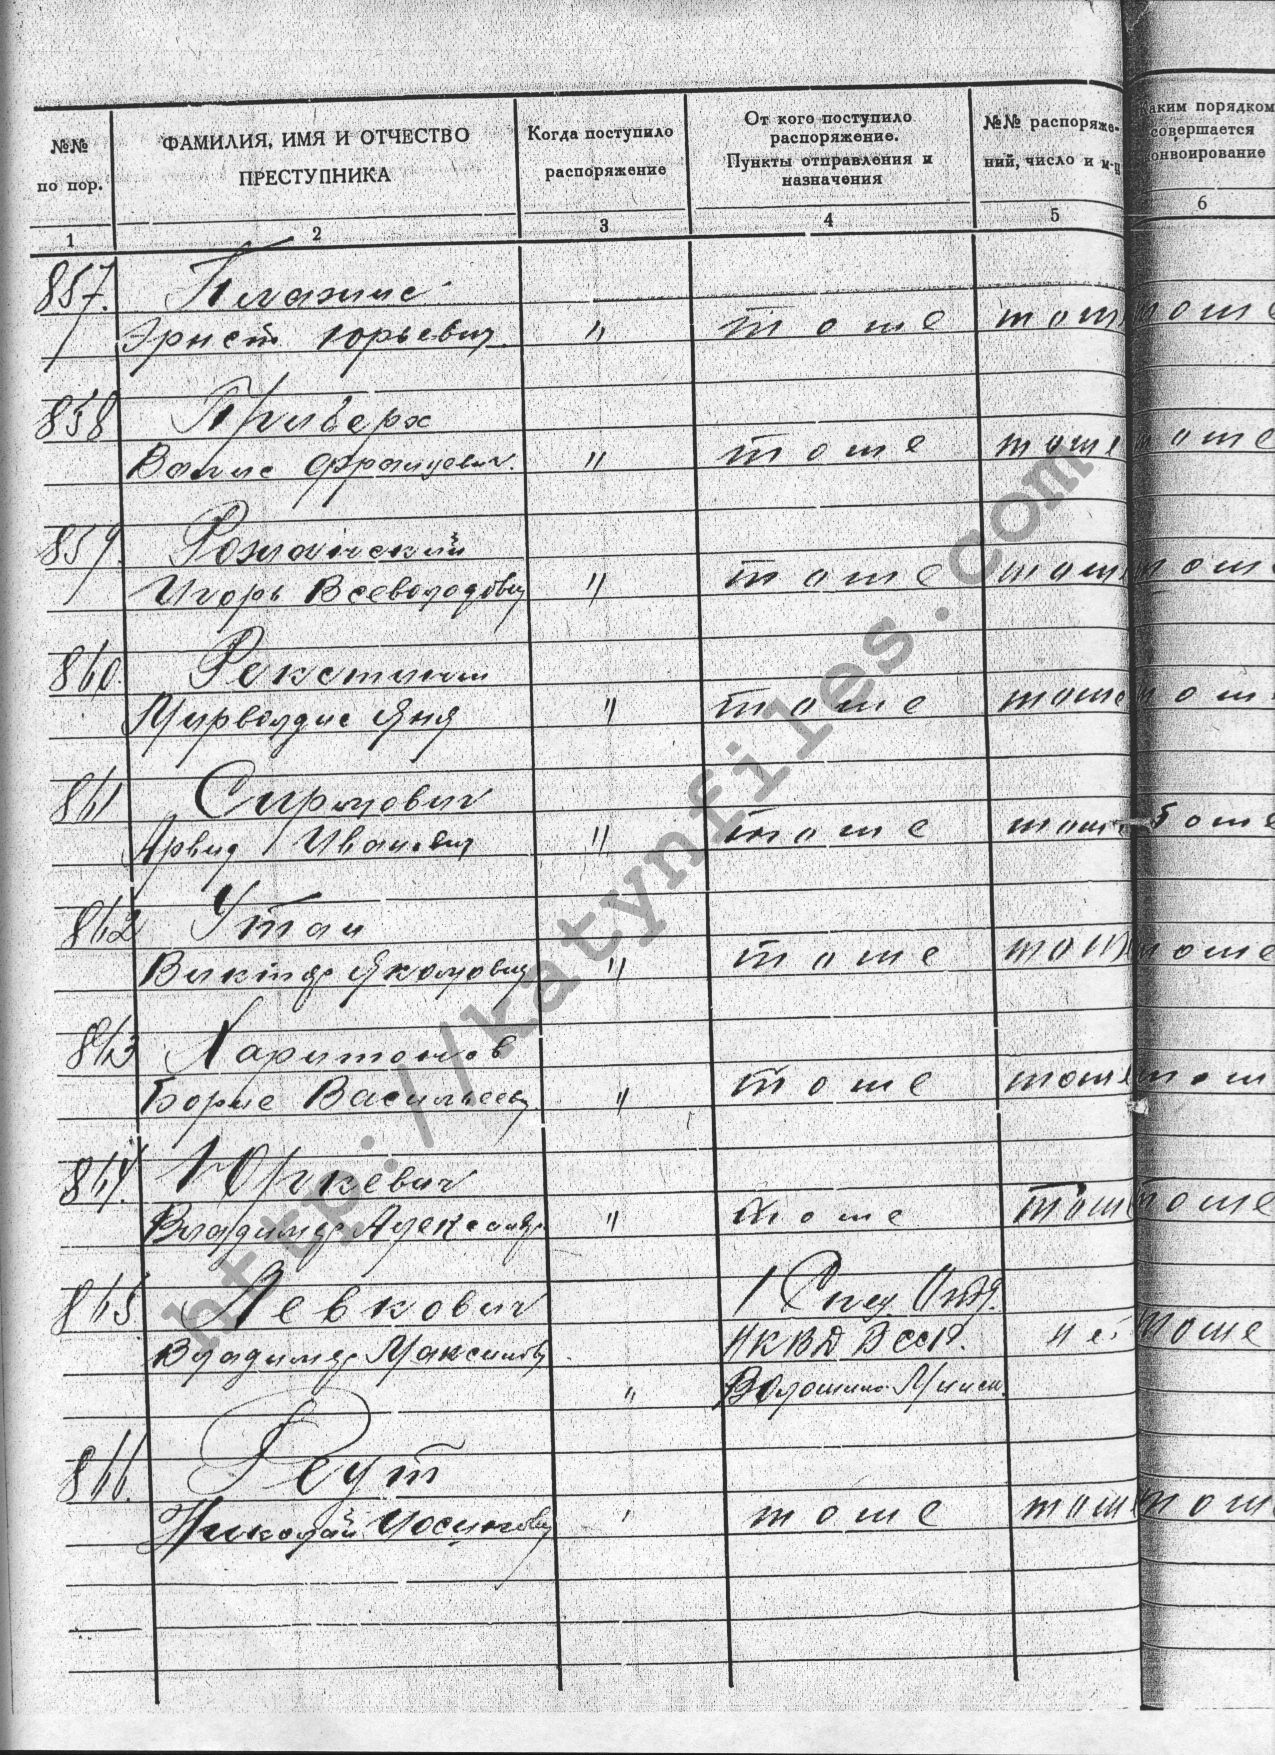 №№ по пор.
ФАМИЛИЯ, ИМЯ И ОТЧЕСТВО ПРЕСТУПНИКА
Когда поступило распоряжение
От кого поступило распоряжение. Пункты отправления и назначения
№№ распоряже- ний, число и м-ц
аким порядком совершается онвоирование
1 2 3 4 5 6
857.
Эрнст Юрьевич. " тоже тоже тоже
858 Приверх
Вольис Францевич. " тоже тоже тоже
859.
Игорь Всеволодович " тоже тоже тоже
860.
Мирволдис Яня " тоже тоже тоже
861
Арвид Иванович " тоже тоже тоже
862 Утан
Виктор Якомович " тоже тоже тоже
863 Харитонов
Борис Васильевич. " тоже тоже тоже
864. Юркевич
Владимир Александр. " тоже тоже тоже
865 Левкович 1 Спец Отд.
Владимир Максимов. НКВД БССР. тоже
" Минск.
866. Реут
Николай Иосифович " тоже тоже тоже
http://katynfiles.com